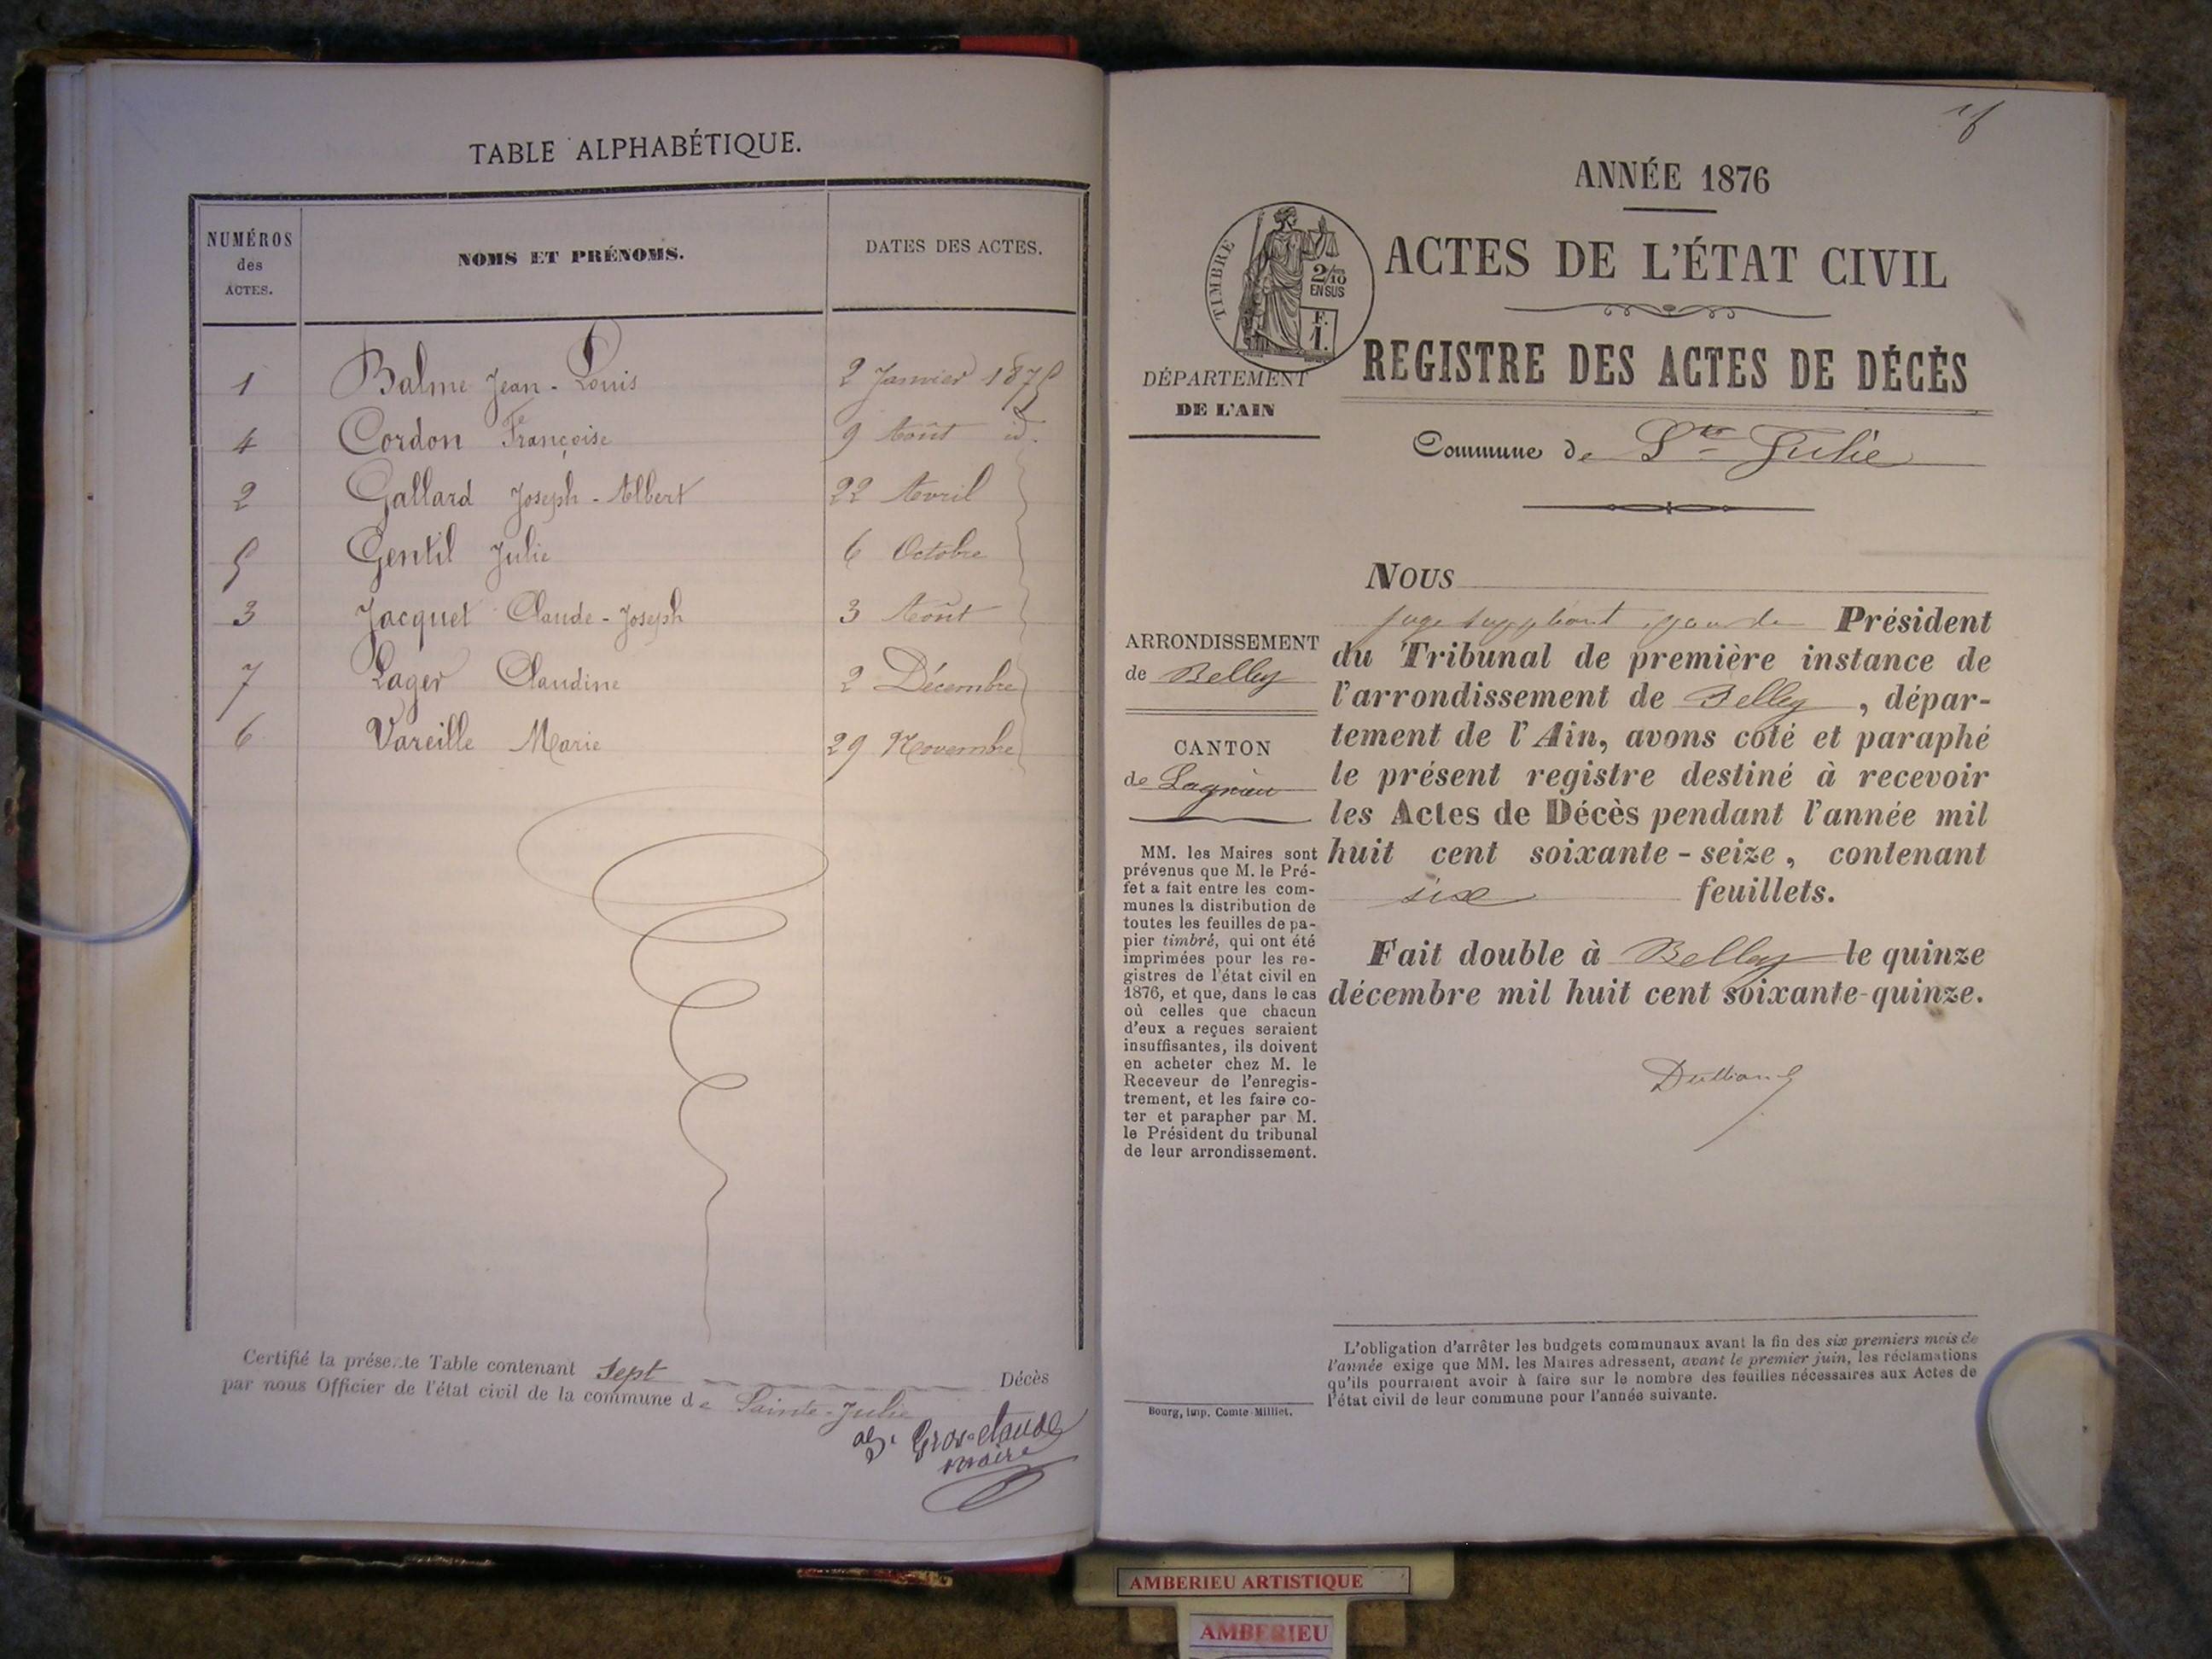 TABLE ALPHABÉTIQUE.
NUMÉROS des ACTES. NOMS ET PRÉNOMS. DATES DES ACTES.
1 Balme Jean-Louis 2 Janvier 1875
4 Cordon Françoise 9 Août id.
2 Gallard Joseph-Albert 22 Avril
5 Gentil Julie 6 Octobre
3 Jacquet Claude-Joseph 3 Août
7 Lager Claudine 2 Décembre
6 Vareille Marie 29 Novembre
Certifié la présente Table contenant Sept Décès
par nous Officier de l'état civil de la commune de Sainte-Julie
Gros-claude
maire
ANNÉE 1876
TIMBRE
2/10
EN SUS
F.
1.
ACTES DE L'ÉTAT CIVIL
REGISTRE DES ACTES DE DÉCÈS
DÉPARTEMENT
DE L'AIN
Commune de Ste Julie
ARRONDISSEMENT
de Belley
CANTON
de Lagnieu
MM. les Maires sont
prévenus que M. le Pré-
fet a fait entre les com-
munes la distribution de
toutes les feuilles de pa-
pier timbré, qui ont été
imprimées pour les re-
gistres de l'état civil en
1876, et que, dans le cas
où celles que chacun
d'eux a reçues seraient
insuffisantes, ils doivent
en acheter chez M. le
Receveur de l'enregis-
trement, et les faire co-
ter et parapher par M.
le Président du tribunal
de leur arrondissement.
Bourg, imp. Comte-Milliet.
NOUS
juge suppléant Président
du Tribunal de première instance de
l'arrondissement de Belley, dépar-
tement de l'Ain, avons coté et paraphé
le présent registre destiné à recevoir
les Actes de Décès pendant l'année mil
huit cent soixante-seize, contenant
six feuillets.
Fait double à Belley le quinze
décembre mil huit cent soixante-quinze.
L'obligation d'arrêter les budgets communaux avant la fin des six premiers mois de
l'année exige que MM. les Maires adressent, avant le premier juin, les réclamations
qu'ils pourraient avoir à faire sur le nombre des feuilles nécessaires aux Actes de
l'état civil de leur commune pour l'année suivante.
AMBERIEU ARTISTIQUE
AMBERIEU